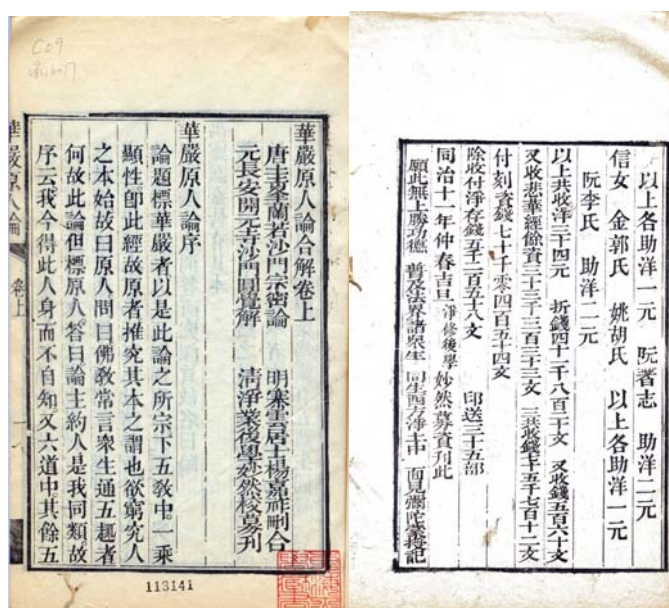 C09
華嚴原人論 卷上
華嚴原人論合解卷上
唐圭峯蘭若沙門宗密論 明寨雲居士楊嘉祚刪合
元長安開元寺沙門圓覺解 清淨業後學妙然校募刊
華嚴原人論序
論題標華嚴者以是此論之所宗下五敎中。一乘
顯性卽此經故原者推究其本之謂也欲窮究人
之本始故曰原人問曰佛敎常言衆生通五趣者
何故此論但標原人答曰論主約人是我同類故
序云我今得此人身而不自知又六道中。其餘五
113141
以上各助洋一元 阮著志 助洋二元
信女 金郭氏 姚胡氏 以上各助洋一元
阮李氏 助洋二元
以上共收洋三十四元 折錢四十一千八百二十文 又收錢五百六十文
又收悲華經餘資三十三千三百三十二文 三共收錢七十五千七百十二文
付刻資錢七十千零四百五十四文
除收付淨存錢五千二百五十八文 印送三十五部
同治十一年仲春吉旦 淨修後學妙然募資刊此
願此無上勝功德 普及法界諸衆生 同生西方淨土中 面見彌陀 記